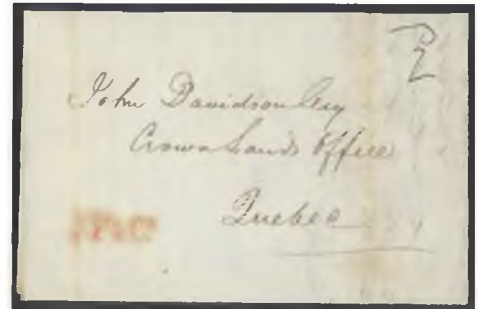 John Davidson Esq
Crown Lands Office
Quebec